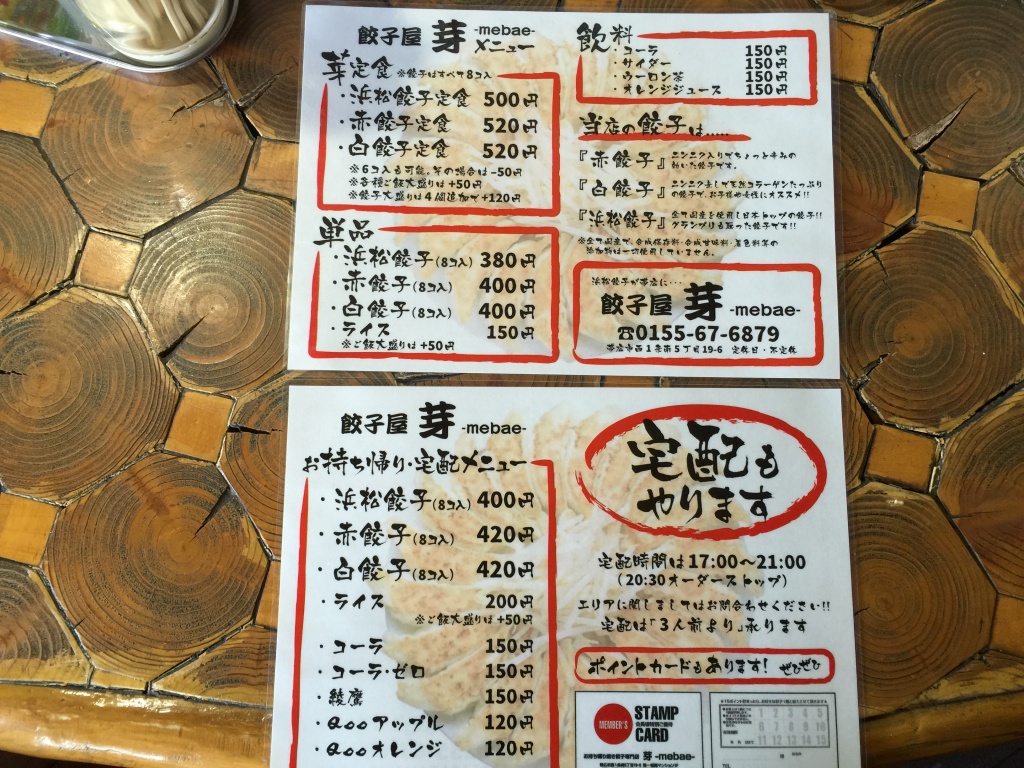 餃子屋 芽 -mebae-
メニュー
定食 ※餃子はすべて8コ入
・浜松餃子定食 500円
・赤餃子定食 520円
・白餃子定食 520円
※6コ入も可能。その場合は-50円
※各種ご飯大盛りは+50円
※餃子大盛りは4個追加で+120円
単品
・浜松餃子(8コ入) 380円
・赤餃子(8コ入) 400円
・白餃子(8コ入) 400円
・ライス 150円
※ご飯大盛りは+50円
飲料
・コーラ 150円
・サイダー 150円
・ウーロン茶 150円
・オレンジジュース 150円
当店の餃子は.....
『赤餃子』ニンニク入りでちょっと辛みの
効いた餃子です。
『白餃子』ニンニク無しで天然コラーゲンたっぷり
の餃子で、お子様や女性にオススメ!!
『浜松餃子』全て国産を使用し日本トップの餃子!!
グランプリも取った餃子です!!
※全て国産で、合成保存料・合成甘味料・着色料等の
添加物は一切使用していません。
浜松餃子が帯広に・・・
餃子屋 芽 -mebae-
☎0155-67-6879
帯広市西1条南5丁目19-6 定休日・不定休
餃子屋 芽 -mebae-
お持ち帰り・宅配メニュー
・浜松餃子(8コ入) 400円
・赤餃子(8コ入) 420円
・白餃子(8コ入) 420円
・ライス 200円
※ご飯大盛りは+50円
・コーラ 150円
・コーラ・ゼロ 150円
・綾鷹 150円
・Qooアップル 120円
・Qooオレンジ 120円
宅配も
やります
宅配時間は17:00〜21:00
(20:30オーダーストップ)
エリアに関しましてはお問合わせください!!
宅配は「3人前より」承ります
ポイントカードもあります! ぜひぜひ
MEMBER'S
STAMP
CARD
お持ち帰り焼き餃子専門店 芽 -mebae-
1 2 3 4 5
6 7 8 9 10
11 12 13 14 15
TEL